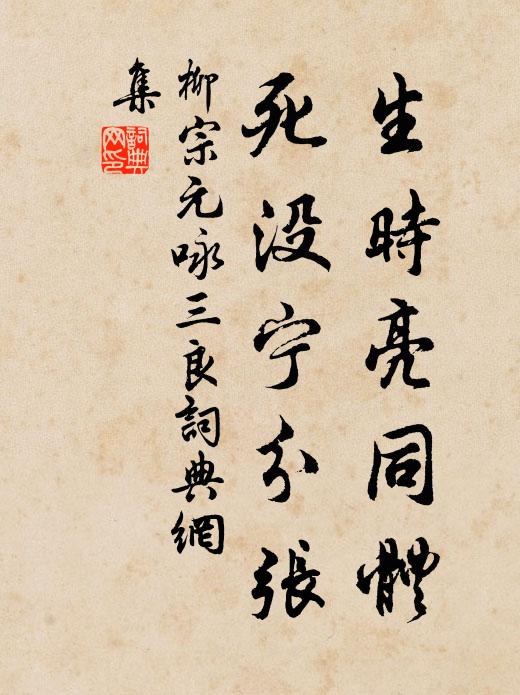 生時亮同體
死没宁分張
柳宗元咏三良詞典網
集
詞典
网印